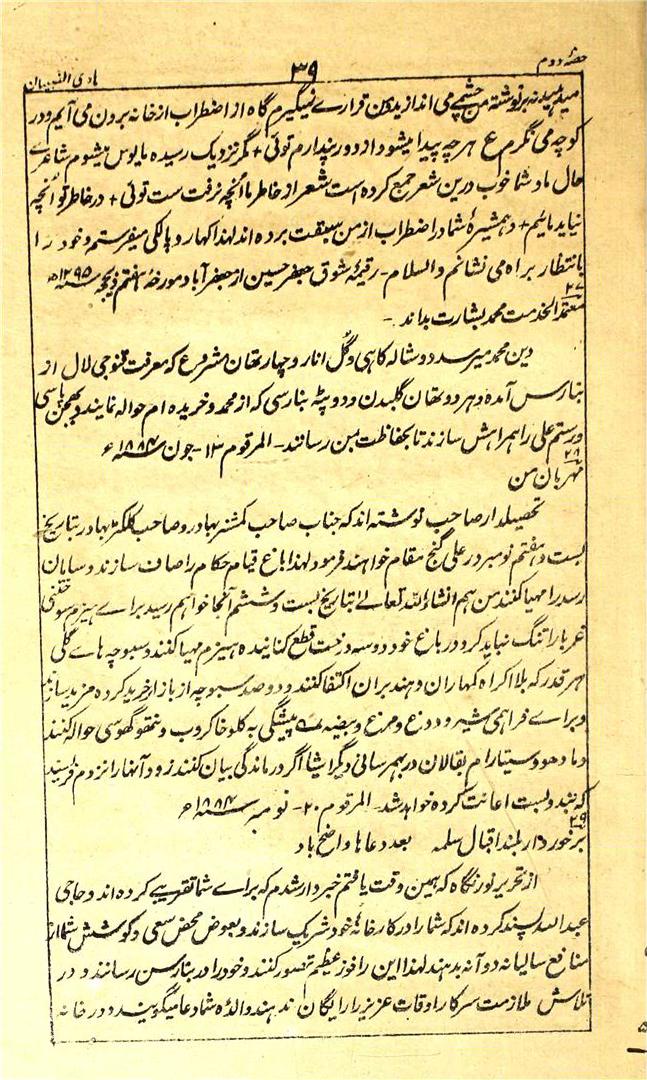 حصهٔ دوم
۳۹
هادی الصبیان
می اندازید من قرارے نمیگیرم گاه از اضطراب از خانه برون می آیم و در
کوچه می نگرم ع هرچه پیدا میشود از دور پندارم توئی + مگر نزدیک رسیده مایوس میشوم شاعرے
حال ما و شما خوب درین شعر جمع کرده است شعر از خاطر ما آنچه نرفت ست توئی + در خاطر تو آنچه
نیاید مائیم + و همشیرهٔ شما در اضطراب از من سبقت برده اند لهذا کهار و پالکی میفرستم و خود را
بانتظار براه می نشانم والسلام - رقیمهٔ شوق جعفر حسین از جعفرآباد مورخهٔ هفتم ذیحجه سنه ۱۲۹۵ھ
۲۷
معتمد الخدمت محمد بشارت بداند -
دین محمد میرسد دوشاله کاهی و گل انار و چهار تهان مشروع که معرفت قنوجی لال از
بنارس آمده و هر دو تهان گلبدن و دوپٹه بنارسی که از محمدو خریده ام حواله نمایند و بهجن پاسی
و رستم علی را همراهش سازند تا بحفاظت بمن رسانند - المرقوم ۱۳ - جون سنه ۱۸۸۴ء
۲۸
مهربان من
تحصیلدار صاحب نوشته اند که جناب صاحب کمشنر بهادر و صاحب کلکٹر بهادر بتاریخ
بست و هفتم نومبر در علی گنج مقام خواهند فرمود لهذا باغ قیام حکام را صاف سازند و سامان
رسد را مهیا کنند من هم انشاء الله تعالے بتاریخ بست و ششم آنجا خواهم رسید براے هیزم سوختنی
غربا را تنگ نباید کرد در باغ خود دو سه درخت قطع کنانیده هیزم مهیا کنند و سبوچه هاے گلی
هر قدر که بلا اکراه کمهاران دهند بران اکتفا کنند و دو صد سبوچه از بازار خرید کرده مزید سازند
و براے فراهمی شیر و دوغ و مرغ و بیضه پیشگی به کلو خاکروب و نتهو گهوسی حواله کنند
و مادهو و سیتارام بقالان در بهمرسانی دیگر اشیا اگر درماندگی بیان کنند زود آنها را نزدم فرستند
که بندوبست اعانت کرده خواهد شد - المرقوم ۲۰ - نومبر سنه ۱۸۸۴ء
۲۹
برخوردار بلند اقبال سلمه بعد دعاها واضح باد
از تحریر نور نگاه که همین وقت یافتم خبردار شدم که براے شما تقریبے کرده اند و حاجی
عبدالله پسند کرده اند که شما را در کارخانهٔ خود شریک سازند و بعوض محض سعی و کوشش شما از
منافع سالیانه دو آنه بدهند لهذا این را فوز عظیم تصور کنند و خود را در بنارس رسانند و در
تلاش ملازمت سرکار اوقات عزیز را رایگان ندهند والدهٔ شما دعا میگویند و در خانه